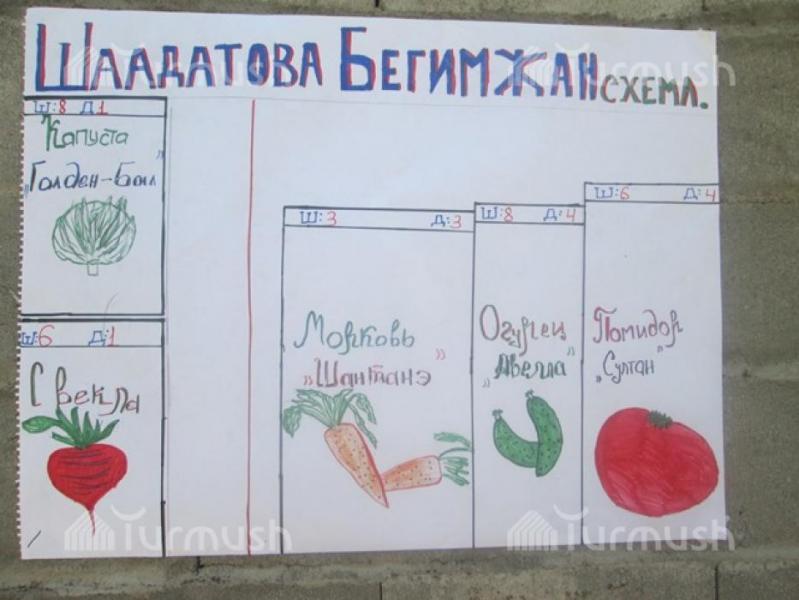 Шаадатова Бегимжан схемл.
Ш:8 Д:1
Капуста
„Голден-Бол"
Ш:6 Д:1
Свекла
Ш:3 Д:3
Морковь
„Шантанэ"
Ш:8 Д:4
Огурец
„Авелла"
Ш:6 Д:4
Помидор
„Султан"
Turmush
Turmush
Turmush
Turmush